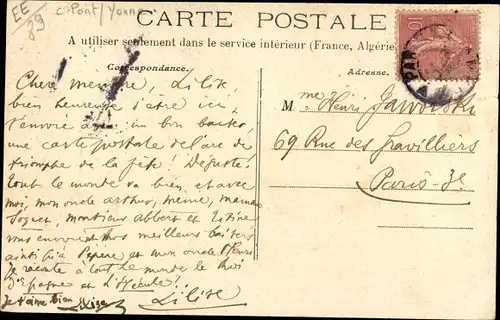 EE
89
c. Pont/Yonne
CARTE POSTALE
A utiliser seulement dans le service intérieur (France, Algérie
Correspondance.
Adresse.
10
PAR
Chère mémère, Lilise,
bien heureuse d'être ici,
t'envoie un bon
une carte postale de l'arc de
triomphe de la fête!
tout le monde va bien et avec
moi, mon oncle arthur, mémé, maman
monsieur abbert et
vous envoient nos meilleurs baisers
ainsi qu'à Pépère et mon oncle Henri
Je raconte à tout le monde le Roi
d'Espagne et
Je t'aime bien
Lilise
M me Henri Jaworski
69 Rue des Gravilliers
Paris-3e